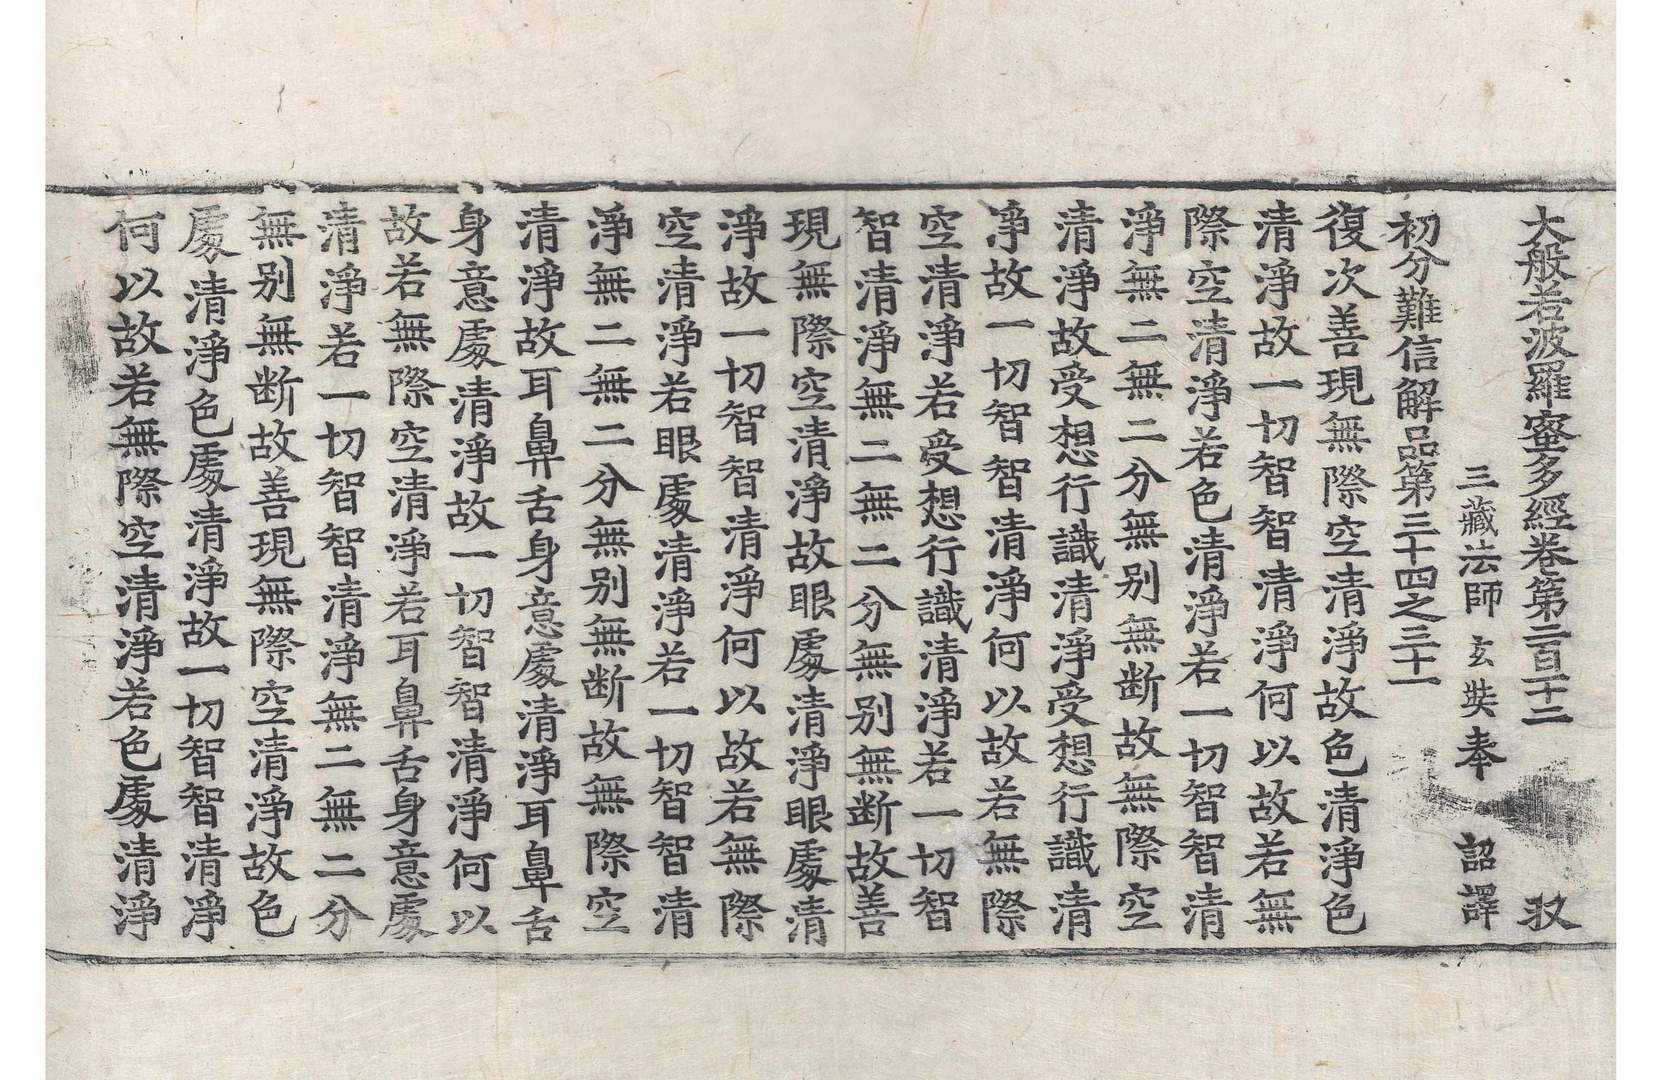 大般若波羅蜜多經卷第二百一十二 収
三藏法師 玄奘奉 詔譯
初分難信解品第三十四之三十一
復次善現無際空清淨故色清淨色
清淨故一切智智清淨何以故若無
際空清淨若色清淨若一切智智清
淨無二無二分無别無断故無際空
清淨故受想行識清淨受想行識清
淨故一切智智清淨何以故若無際
空清淨若受想行識清淨若一切智
智清淨無二無二分無别無断故善
現無際空清淨故眼處清淨眼處清
淨故一切智智清淨何以故若無際
空清淨若眼處清淨若一切智智清
淨無二無二分無别無断故無際空
清淨故耳鼻舌身意處清淨耳鼻舌
身意處清淨故一切智智清淨何以
故若無際空清淨若耳鼻舌身意處
清淨若一切智智清淨無二無二分
無别無断故善現無際空清淨故色
處清淨色處清淨故一切智智清淨
何以故若無際空清淨若色處清淨